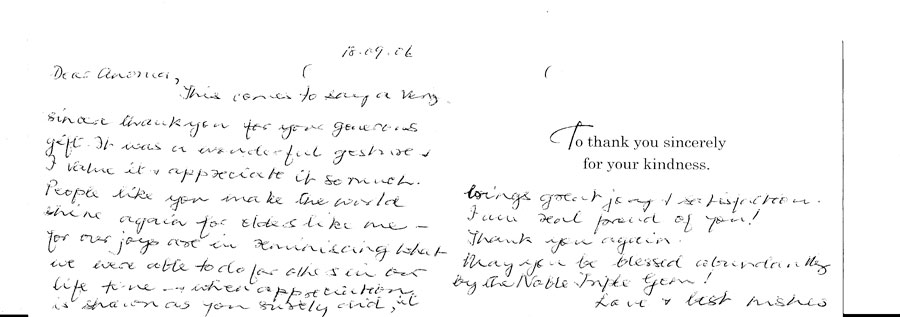 18.09.06
Dear Anoma,
This comes to say a very
sincere thank you for your generous
gift. It was a wonderful gesture &
I value it & appreciate it so much.
People like you make the world
shine again for elders like me –
for our joys are in reminiscing what
we were able to do for others in our
life time – & when appreciation
is shown as you surely did, it
To thank you sincerely
for your kindness.
brings great joy & satisfaction.
I am real proud of you!
Thank you again.
May you be blessed abundantly
by the Noble Triple Gem!
Love & best wishes